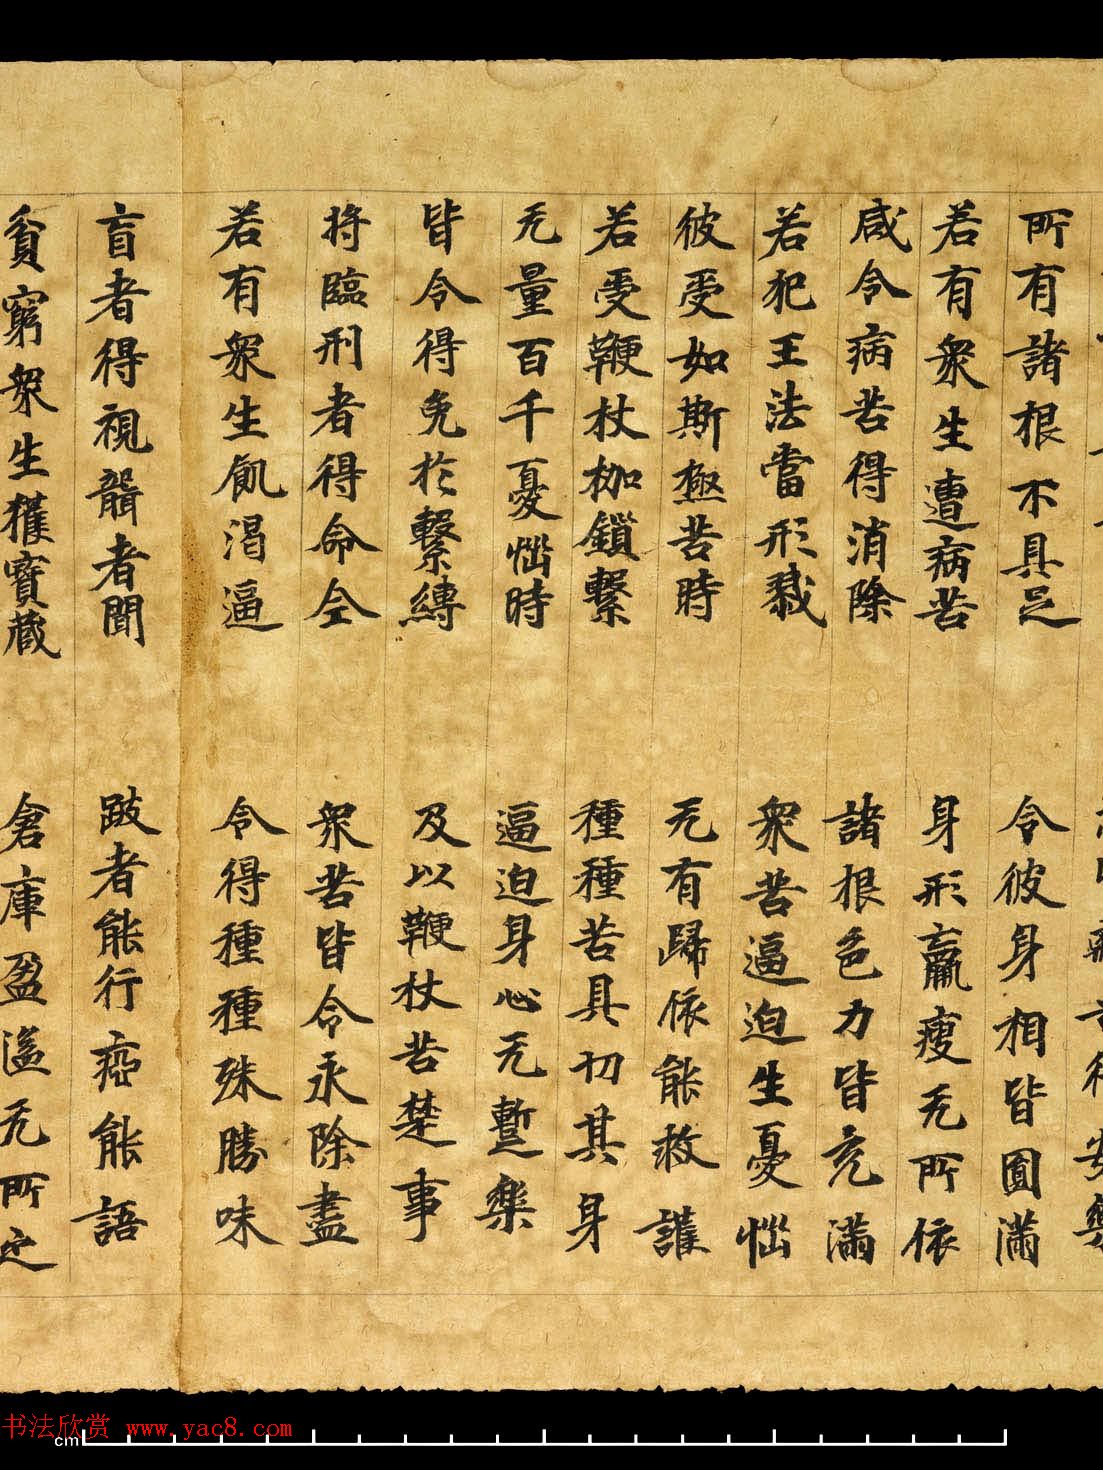 所有諸根不具足 令彼身相皆圓滿
若有衆生遭病苦 身形羸瘦无所依
咸令病苦得消除 諸根色力皆充滿
若犯王法當形戮 衆苦逼迫生憂惱
彼受如斯極苦時 无有歸依能救護
若受鞭杖枷鎖繫 種種苦具切其身
无量百千憂惱時 逼迫身心无暫樂
皆令得免於繫縛 及以鞭杖苦楚事
将臨刑者得命全 衆苦皆令永除盡
若有衆生飢渴逼 令得種種殊勝味
盲者得視聾者聞 跛者能行瘂能語
貧窮衆生獲寶藏 倉庫盈溢无所乏
书法欣赏 www.yac8.com
cm